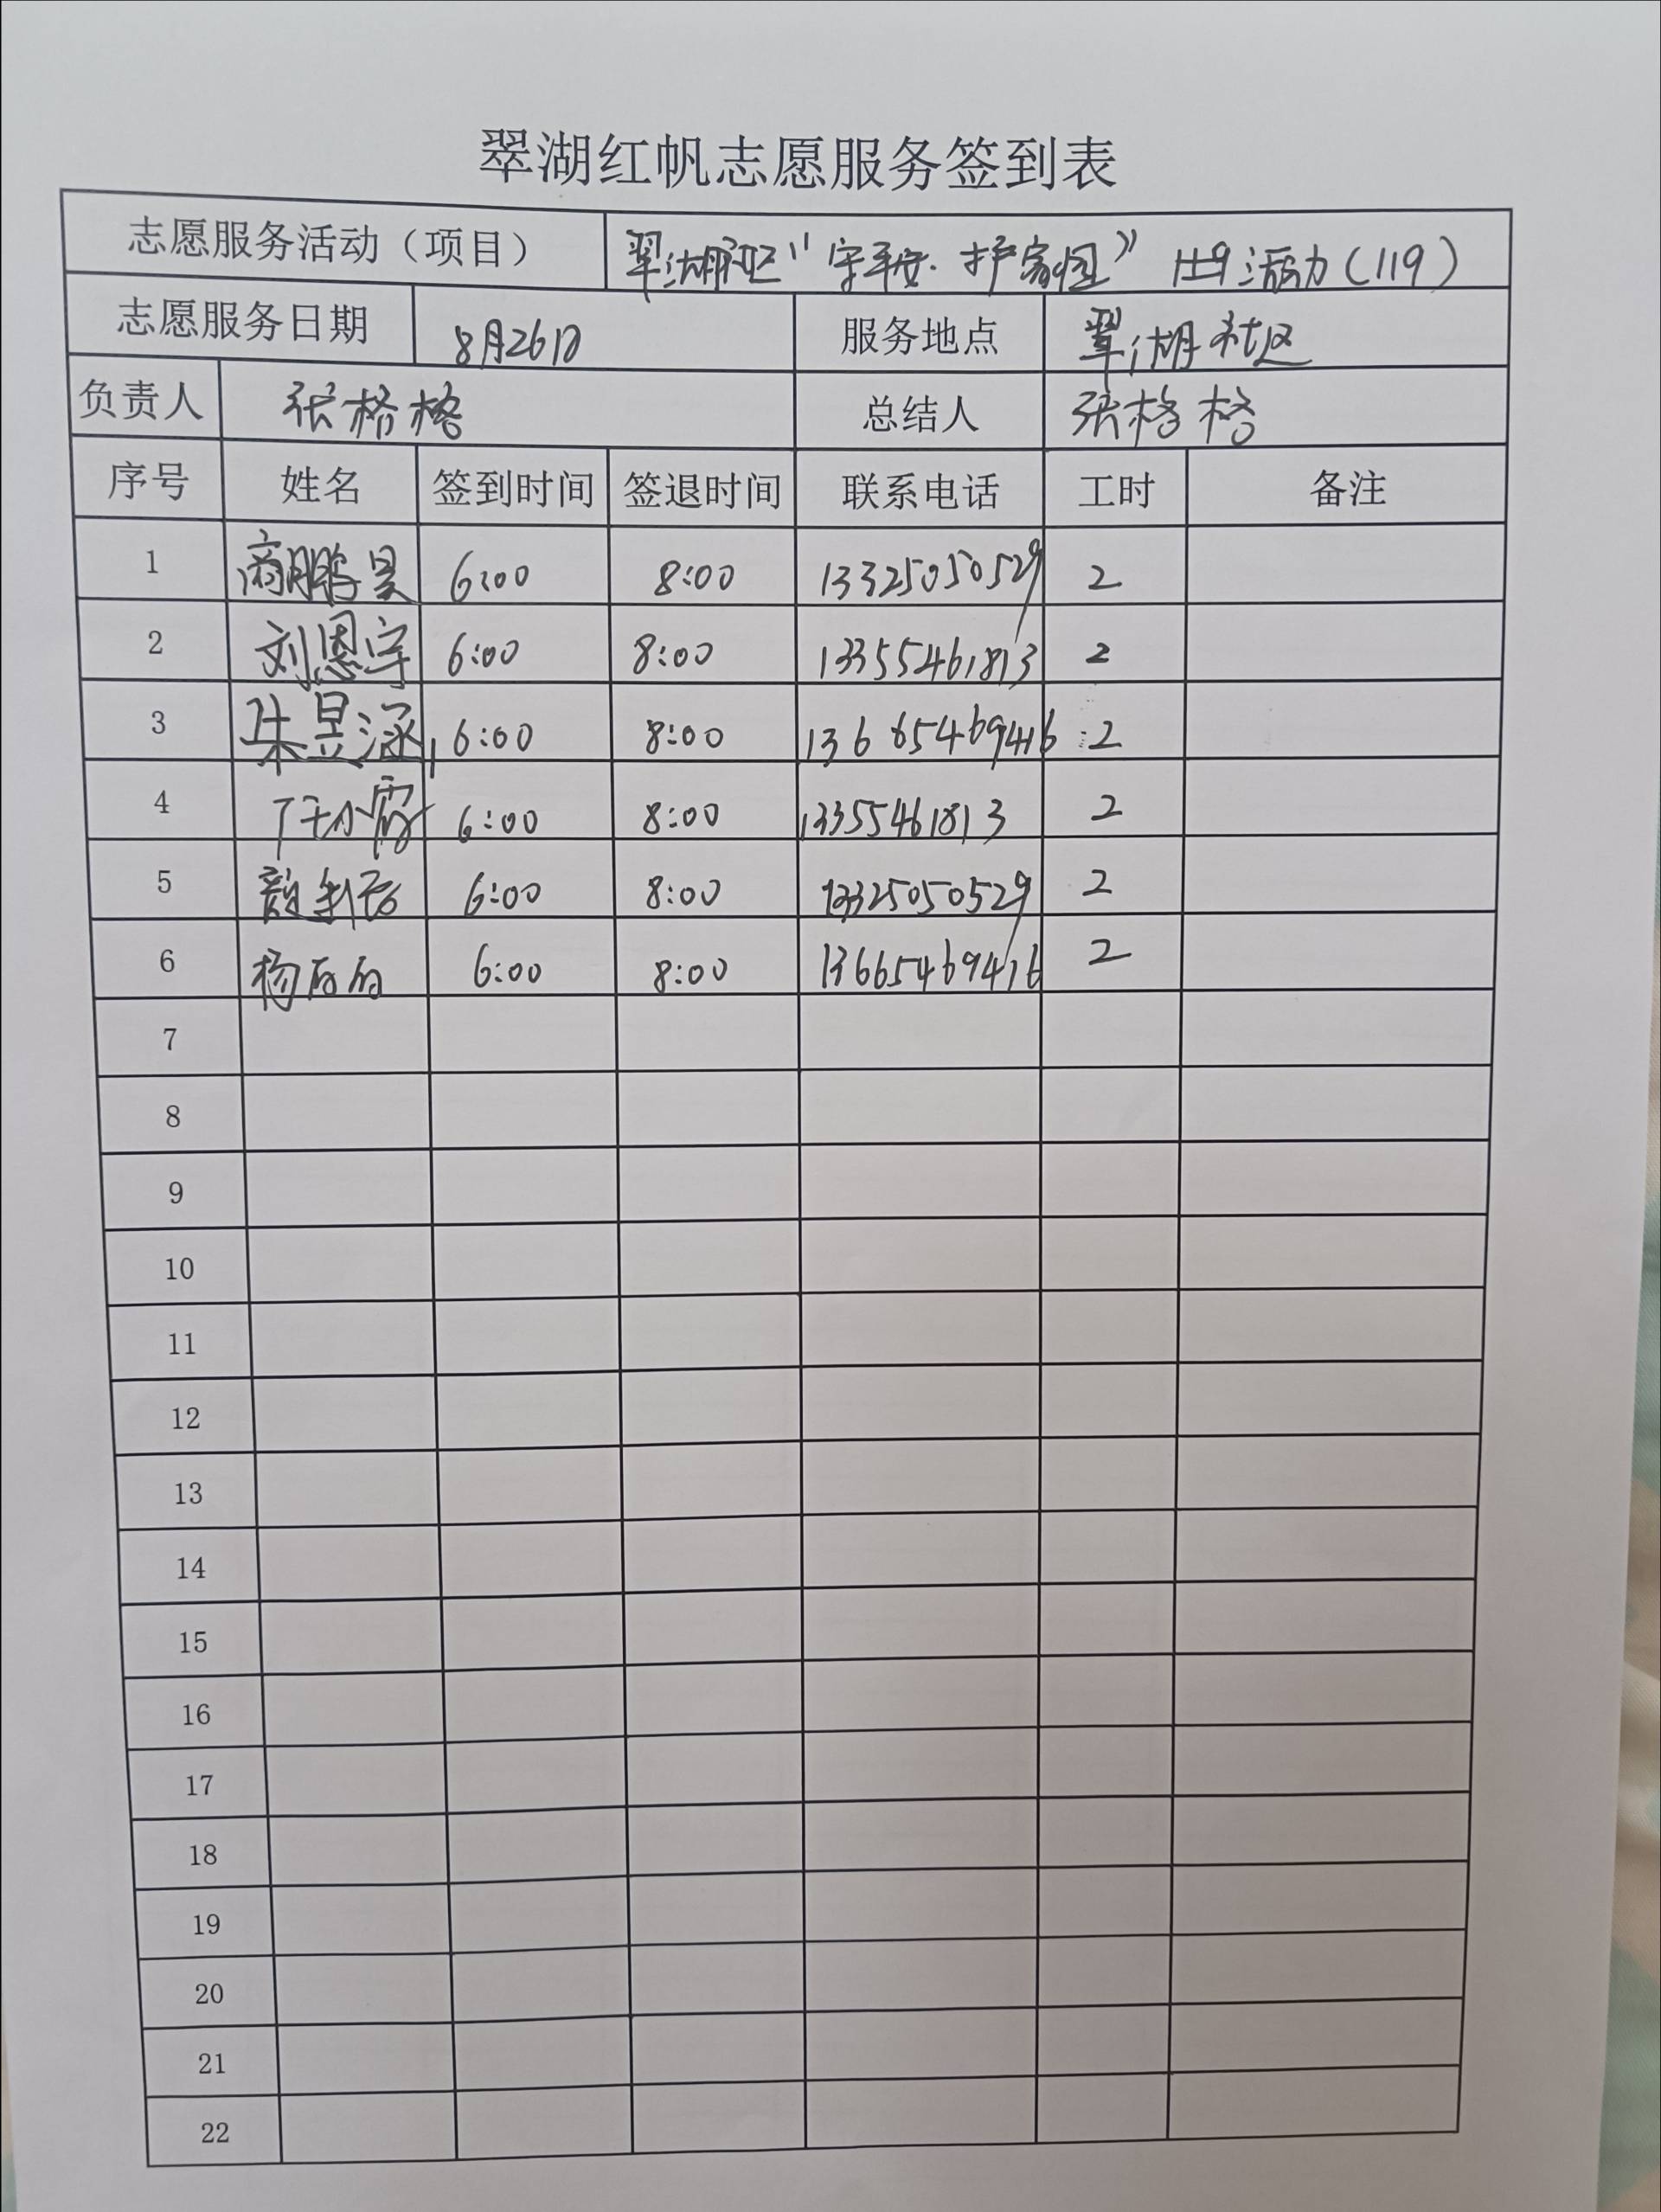 翠湖红帆志愿服务签到表
志愿服务活动（项目） 翠湖社区“守平安·护家园” 活动（119）
志愿服务日期 8月26日 服务地点 翠湖社区
负责人 张格格 总结人 张格格
序号 姓名 签到时间 签退时间 联系电话 工时 备注
1 商鹏昊 6:00 8:00 13325050529 2
2 刘恩宇 6:00 8:00 13355461813 2
3 朱昱涵 6:00 8:00 13665469416 2
4 6:00 8:00 13355461813 2
5 6:00 8:00 13325050529 2
6 杨丽丽 6:00 8:00 13665469416 2
7
8
9
10
11
12
13
14
15
16
17
18
19
20
21
22